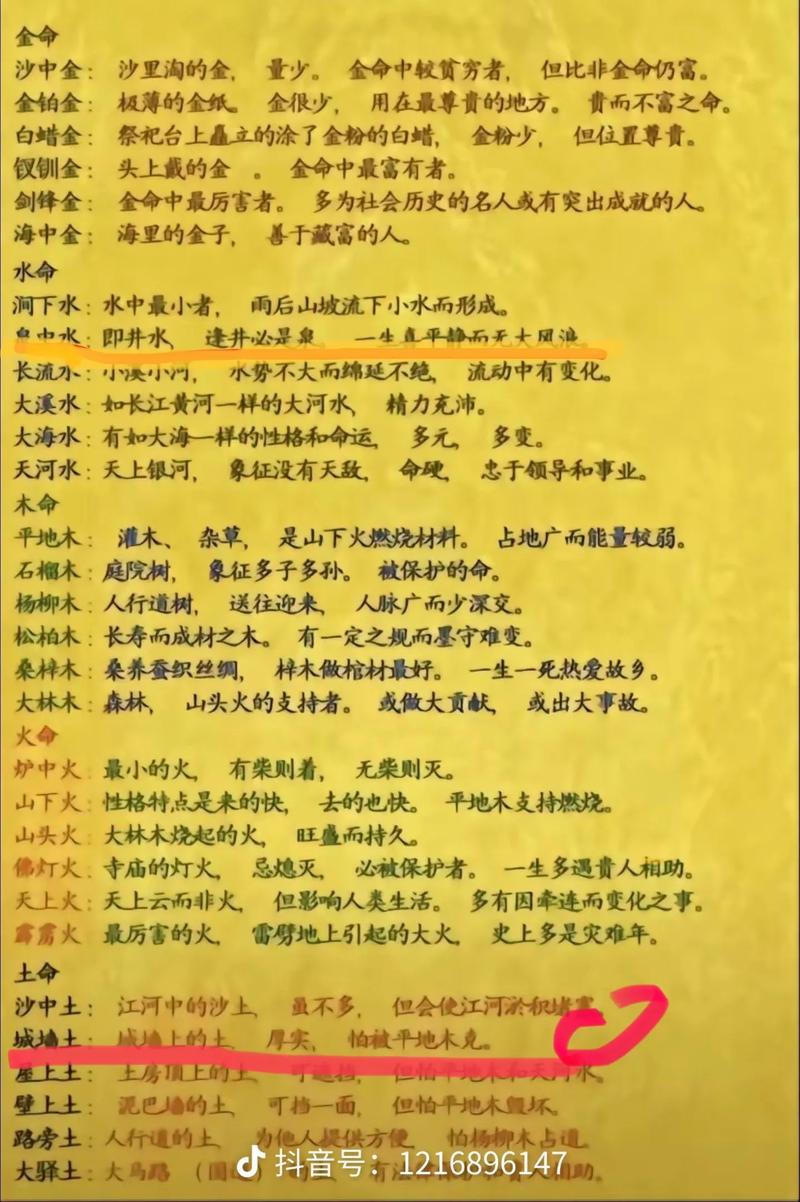 金命
沙中金： 沙里淘的金， 量少。 金命中较贫穷者， 但比非金命仍富。
金铂金： 极薄的金纸。 金很少， 用在最尊貴的地方。 貴而不富之命。
白蜡金： 祭祀台上矗立的涂了金粉的白蜡， 金粉少， 但位置尊貴。
钗钏金： 头上戴的金 。 金命中最富有者。
剑锋金： 金命中最厉害者。 多为社会历史的名人或有突出成就的人。
海中金： 海里的金子， 善于藏富的人。
水命
涧下水：水中最小者， 雨后山坡流下小水而形成。
泉中水：即井水， 逢井必是泉。 一生真平静而无大风浪。
长流水：小溪小河， 水势不大而绵延不绝， 流动中有变化。
大溪水：如长江黄河一样的大河水， 精力充沛。
大海水：有如大海一样的性格和命运， 多元， 多变。
天河水：天上银河， 象征没有天敌， 命硬， 忠于领导和事业。
木命
平地木： 灌木、 杂草， 是山下火燃烧材料。 占地广而能量较弱。
石榴木：庭院树， 象征多子多孙。 被保护的命。
杨柳木：人行道树， 送往迎来， 人脉广而少深交。
松柏木：长寿而成材之木。 有一定之规而墨守难变。
桑梓木：桑养蚕织丝绸， 梓木做棺材最好。 一生一死热爱故乡。
大林木：森林， 山头火的支持者。 或做大贡献， 或出大事故。
火命
炉中火 最小的火， 有柴则着， 无柴则灭。
山下火：性格特点是来的快， 去的也快。 平地木支持燃烧。
山头火：大林木烧起的火， 旺盛而持久。
佛灯火：寺庙的灯火， 忌熄灭， 必被保护者。 一生多遇貴人相助。
天上火：天上云而非火， 但影响人类生活。 多有因牵连而变化之事。
霹雳火 最厉害的火， 雷劈地上引起的大火， 史上多是灾难年。
土命
沙中土： 江河中的沙土， 虽不多， 但会使江河淤积堵塞。
城墙土： 城墙上的土， 厚实， 怕被平地木克。
屋上土： 土房顶上的土， 可遮挡， 但怕平地木和天河水。
壁上土： 泥巴墙的土， 可挡一面， 但怕平地木毁坏。
路旁土：人行道的土， 为他人提供方便， 怕杨柳木占道。
大驿土：大马路 （国 人相助。
抖音号：1216896147